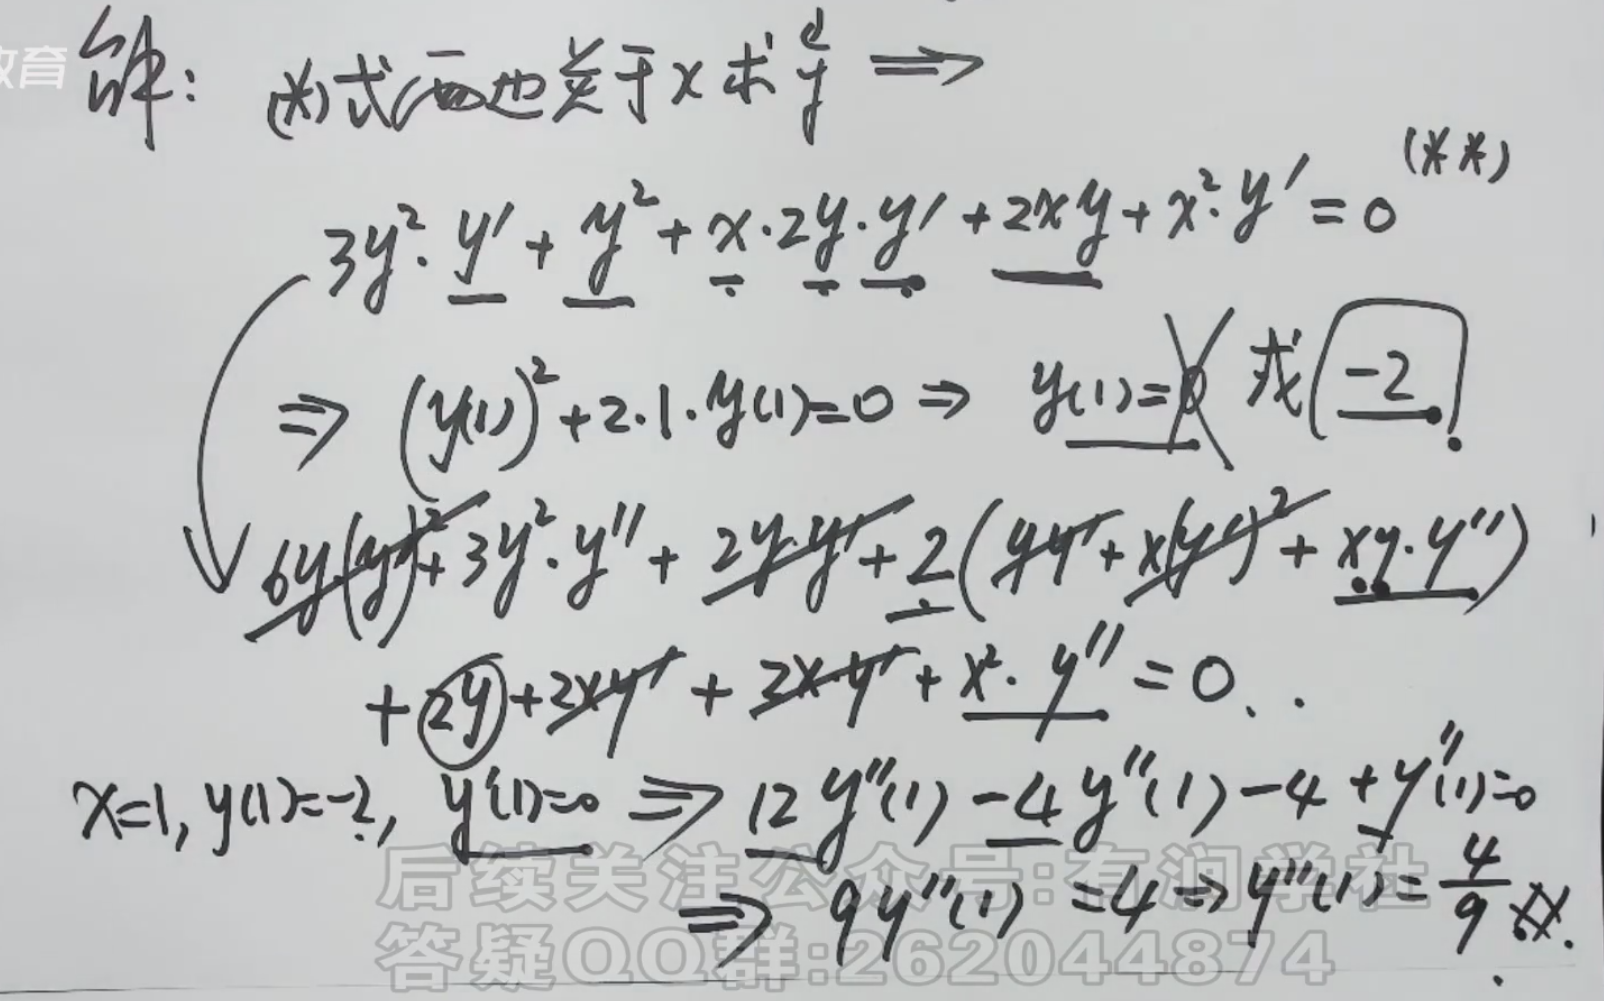 教育
解: (*)式两边关于x求导 ⟹
3y²·y′ + y² + x·2y·y′ + 2xy + x²·y′ = 0 (**)
⟹ (y(1))² + 2·1·y(1) = 0 ⟹ y(1) = 0 或 -2
6y(y′)² + 3y²·y″ + 2y·y′ + 2(yy′ + x(y′)² + xy·y″)
+ 2y + 2xy′ + 2x·y′ + x²·y″ = 0.
x=1, y(1)=-2, y′(1)=0 ⟹ 12y″(1) -4y″(1) -4 + y″(1)=0
⟹ 9y″(1) = 4 ⟹ y″(1) = 4/9
后续关注公众号:有润学社
答疑QQ群:262044874